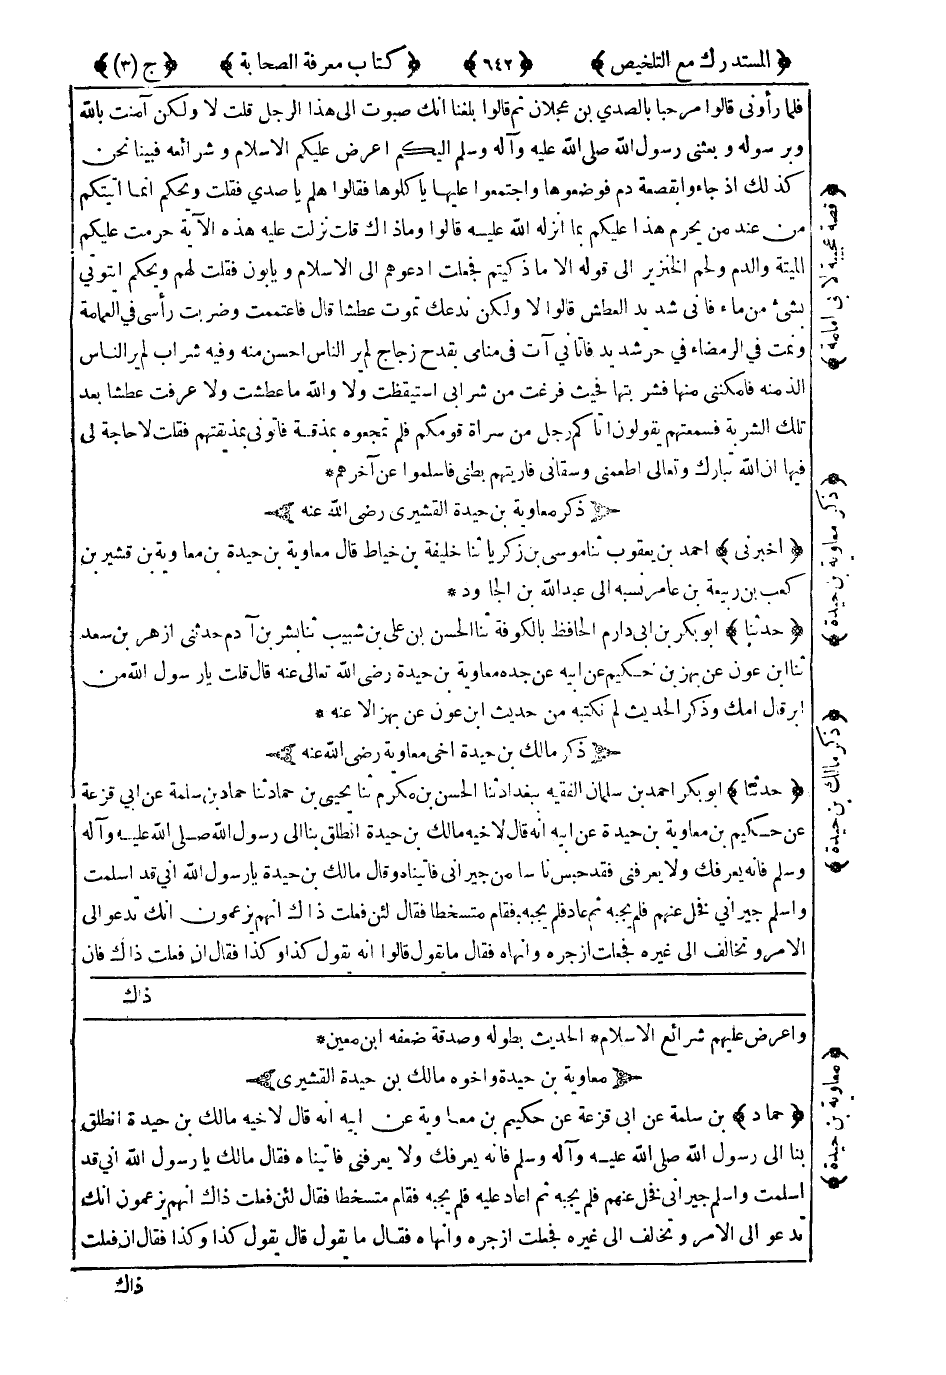 ﴿ المستدرك مع التلخيص ﴾ ﴿ ٦٤٢ ﴾ ﴿ كتاب معرفة الصحابة ﴾ ﴿ ج (٣) ﴾
فلما رأونى قالوا مرحبا بالصدي بن عجلان ثم قالوا بلغنا انك صبوت الى هذا الرجل قلت لا ولكن آمنت بالله
وبرسوله وبعثنى رسول الله صلى الله عليه وآله وسلم اليكم اعرض عليكم الاسلام وشرائعه فبينا نحن
كذلك اذ جاءوا بقصعة دم فوضعوها واجتمعوا عليها يأكلوها فقالوا هلم يا صدي فقلت ويحكم انما اتيتكم
من عند من يحرم هذا عليكم بما انزله الله عليه قالوا وماذاك قلت نزلت عليه هذه الآية حرمت عليكم
الميتة والدم ولحم الخنزير الى قوله الا ما ذكيتم فجعلت ادعوهم الى الاسلام ويابون فقلت لهم ويحكم ايتوني
بشئ من ماء فانى شديد العطش قالوا لا ولكن ندعك تموت عطشا قال فاعتممت وضربت رأسى في العمامة
ونمت في الرمضاء في حر شديد فاتاني آت فى منامى بقدح زجاج لم ير الناس احسن منه وفيه شراب لم ير الناس
الذ منه فامكننى منها فشربتها فحيث فرغت من شرابى استيقظت ولا والله ما عطشت ولا عرفت عطشا بعد
تلك الشربة فسمعتهم يقولون اتاكم رجل من سراة قومكم فلم تمجعوه بمذقة فاتونى بمذيقتهم فقلت لا حاجة لى
فيها ان الله تبارك وتعالى اطعمنى وسقانى فاريتهم بطنى فاسلموا عن آخرهم*
ذكر معاوية بن حيدة القشيرى رضى الله عنه
﴿ اخبرنى ﴾ احمد بن يعقوب ثنا موسى بن زكريا ثنا خليفة بن خياط قال معاوية بن حيدة بن معاوية بن قشير بن
كعب بن ربيعة بن عامر نسبه الى عبدالله بن الجاود *
﴿ حدثنا ﴾ ابو بكر بن ابى دارم الحافظ بالكوفة ثنا الحسن بن على بن شبيب ثنا بشر بن آدم حدثنى ازهر بن سعد
ثنا ابن عون عن بهز بن حكيم عن ابيه عن جده معاوية بن حيدة رضى الله تعالى عنه قال قلت يا رسول الله من
ابر قال امك وذكر الحديث لم نكتبه من حديث ابن عون عن بهز الا عنه *
ذكر مالك بن حيدة اخى معاوية رضى الله عنه
﴿ حدثنا ﴾ ابو بكر احمد بن سلمان الفقيه ببغداد ثنا الحسن بن مكرم ثنا يحيى بن حماد ثنا حماد بن سلمة عن ابي قزعة
عن حكيم بن معاوية بن حيدة عن ابيه انه قال لاخيه مالك بن حيدة انطلق بنا الى رسول الله صلى الله عليه وآله
وسلم فانه يعرفك ولا يعرفنى فقد حبس ناسا من جيرانى فاتيناه وقال مالك بن حيدة يا رسول الله اني قد اسلمت
واسلم جيرانى فخل عنهم فلم يجبه ثم عاد فلم يجبه فقام متسخطا فقال لئن فعلت ذاك انهم يزعمون انك تدعو الى
الامر وتخالف الى غيره فجعلت ازجره وانهاه فقال ما يقول قالوا انه يقول كذا وكذا فقال ان فعلت ذاك فان
ذاك
واعرض عليهم شرائع الاسلام* الحديث بطوله وصدقة ضعفه ابن معين*
معاوية بن حيدة واخوه مالك بن حيدة القشيرى
﴿ حماد ﴾ بن سلمة عن ابى قزعة عن حكيم بن معاوية عن ابيه انه قال لاخيه مالك بن حيدة انطلق
بنا الى رسول الله صلى الله عليه وآله وسلم فانه يعرفك ولا يعرفنى فاتيناه فقال مالك يا رسول الله انى قد
اسلمت واسلم جيرانى فخل عنهم فلم يجبه ثم اعاد عليه فلم يجبه فقام متسخطا فقال لئن فعلت ذاك انهم يزعمون انك
تدعو الى الامر وتخالف الى غيره فجعلت ازجره وانهاه فقال ما يقول قال يقول كذا وكذا فقال ان فعلت
ذاك
﴿ قصة عجيبة لابى امامة ﴾
﴿ ذكر معاوية بن حيدة ﴾
﴿ ذكر مالك بن حيدة ﴾
﴿ معاوية بن حيدة ﴾